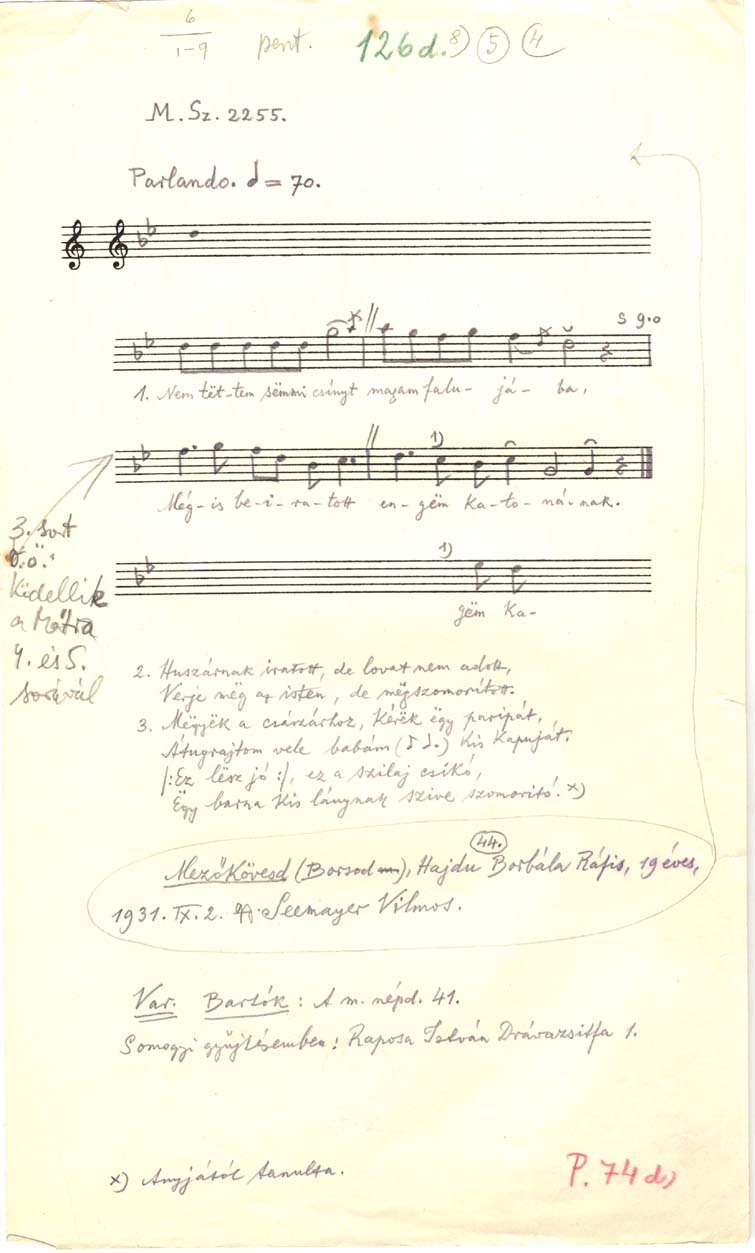 6
1-9 pent. 126d. 8) 5 4
M. Sz. 2255.
Parlando. = 70.
S 9.0
1. Nem tët-tem sëmmi csínyt magam falu- já- ba,
1)
Még-is be-i-ra-tott en-gëm ka-to-ná-nak.
1)
gëm ka-
3. sort
Kidellik
a Mátra
4. és 5.
sorával
2. Huszárnak iratott, de lovat nem adott,
Verje mëg az isten, de mëgszomorított.
3. Mëgyëk a császárhoz, kérëk ëgy paripát,
Átugrajtom vele babám ( ) kis kapuját.
/:Ez lësz jó:/, ez a szilaj csikó,
Ëgy barna kis lánynak szive szomorító. x)
44.
Mezőkövesd (Borsod m), Hajdu Borbála Ráfis, 19 éves,
1931. IX. 2. Seemayer Vilmos.
Var. Bartók: A m. népd. 41.
Somogyi gyűjtésemben: Raposa István Drávazsitfa 1.
x) Anyjától tanulta.
P. 74 d)